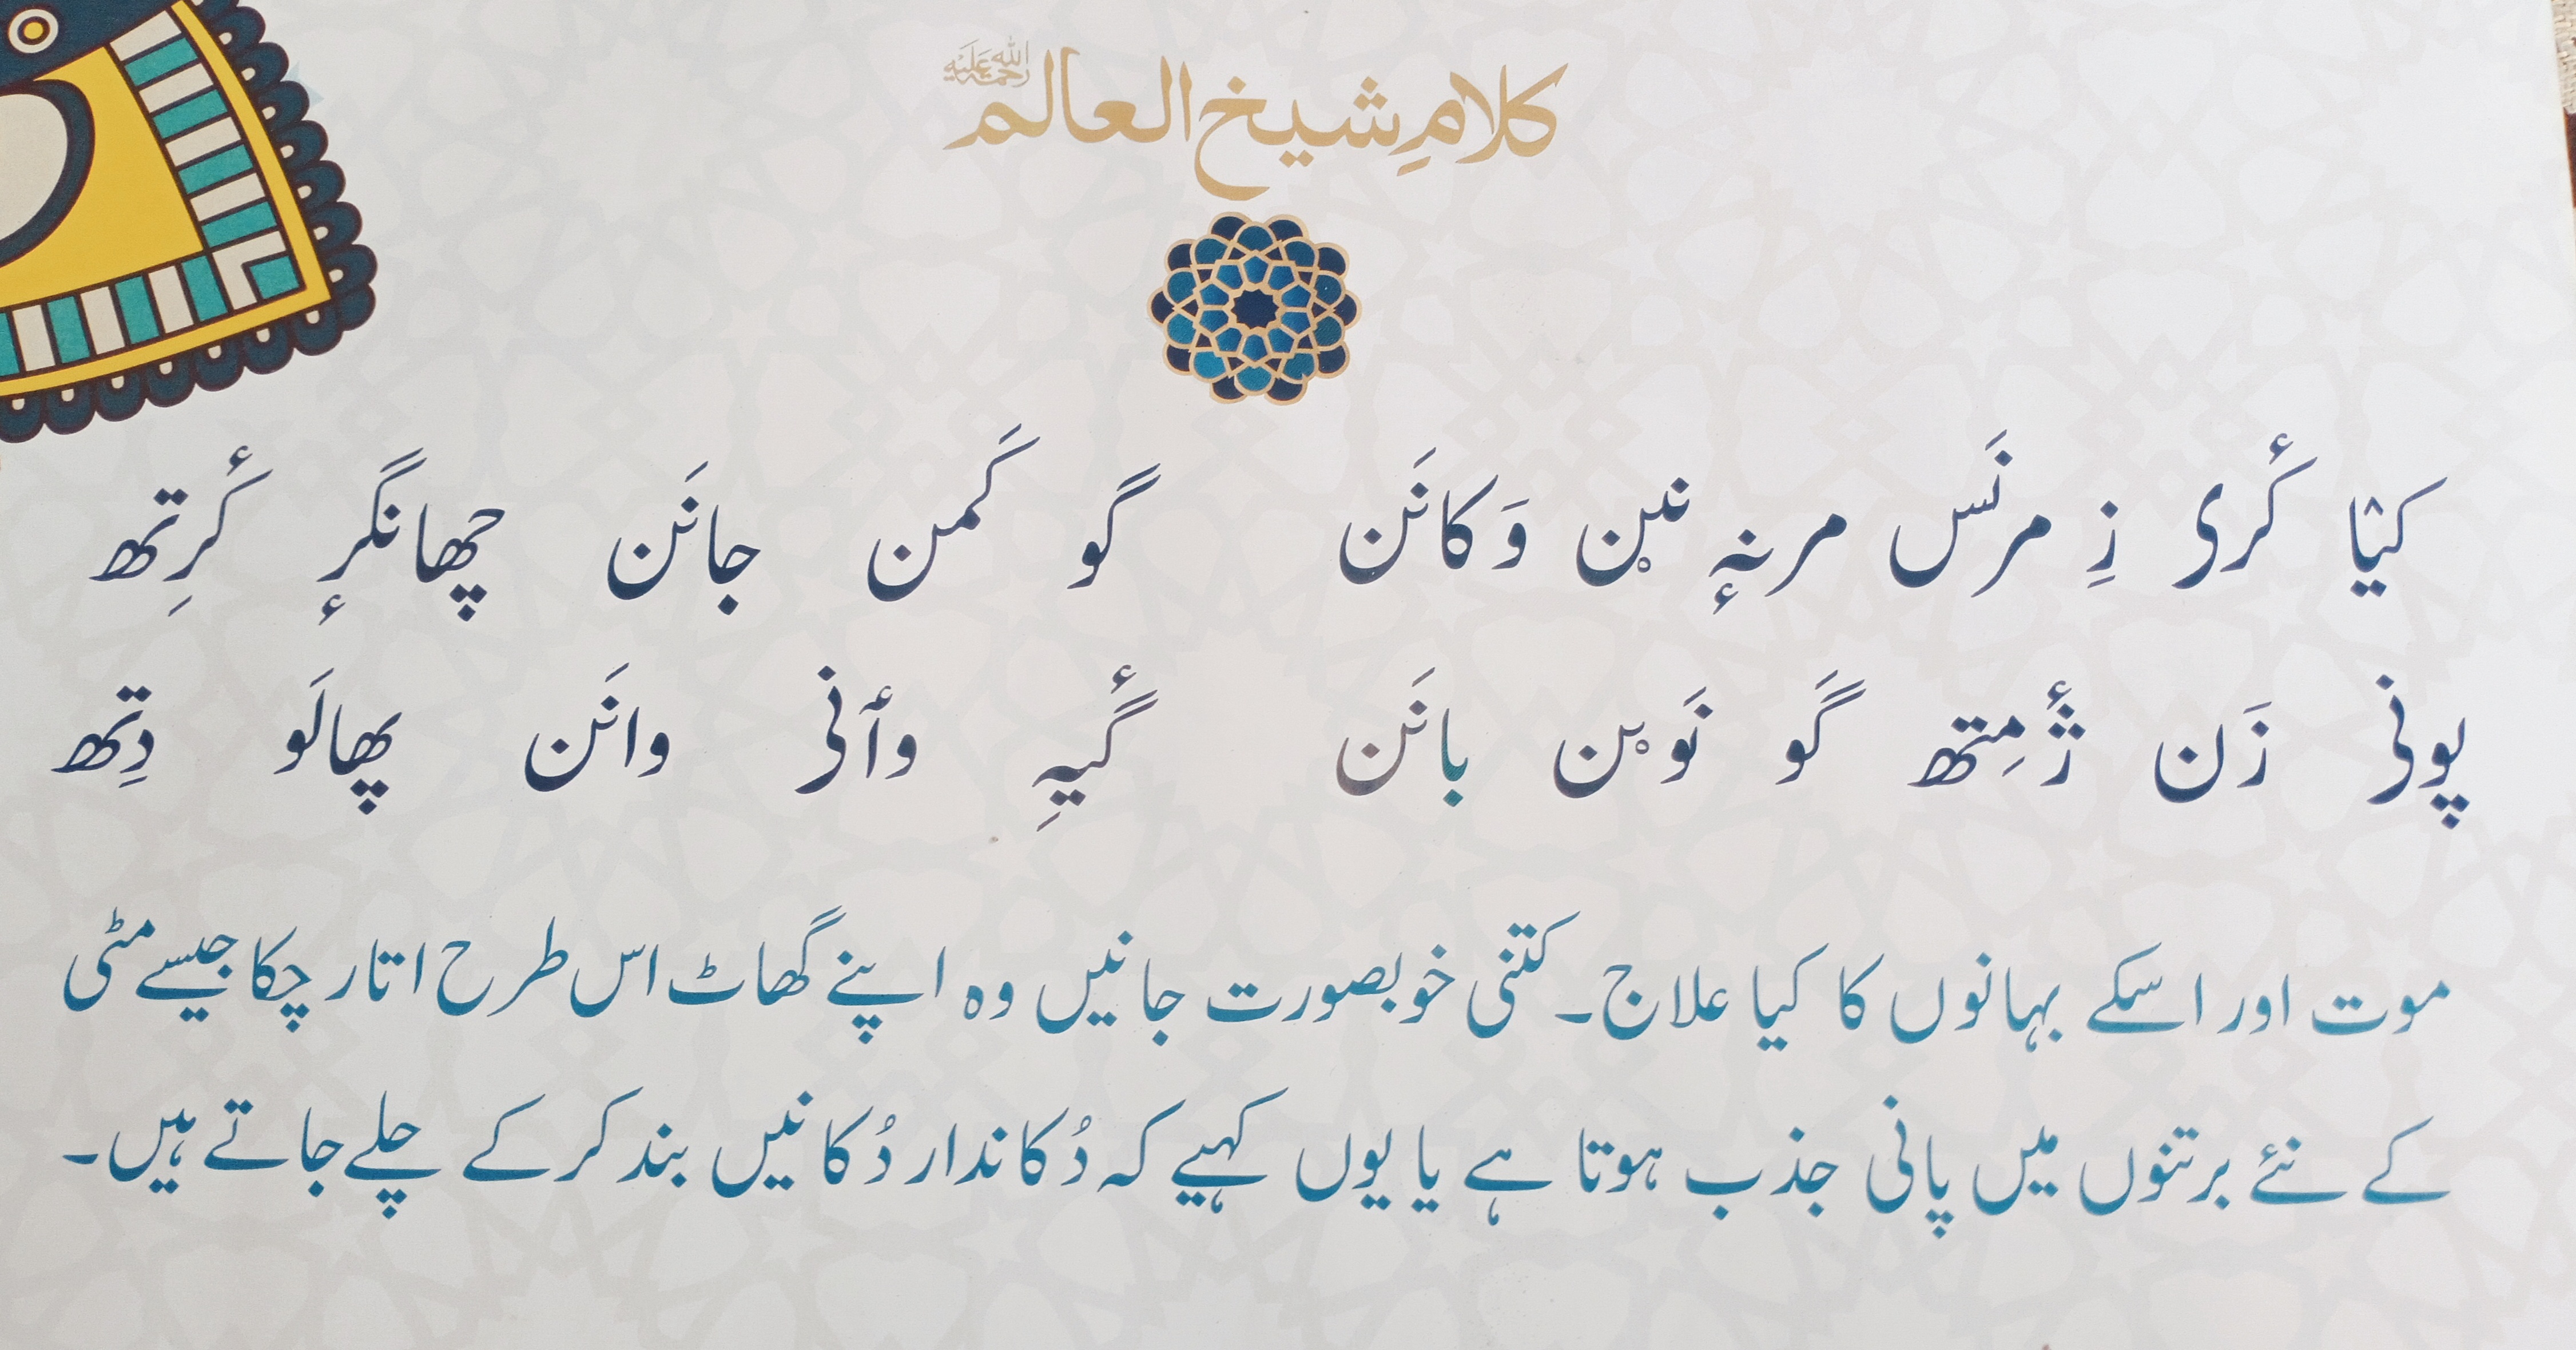 کلامِ شیخ العالم رحمۃ اللہ علیہ
کیٛا کٔری زِ مرنَس مرنہٕ نیٚن وَکانَن گو کَمن جانَن چھانگرٕ کٔرِتھ
پونی زَن ژٔمِتھ گَو نَویٚن بانَن گٔیہِ وٲنی وانَن پھالَو دِتھ
موت اور اسکے بہانوں کا کیا علاج۔ کتنی خوبصورت جانیں وہ اپنے گھاٹ اس طرح اتار چکا جیسے مٹی
کے نئے برتنوں میں پانی جذب ہوتا ہے یا یوں کہیے کہ دُکاندار دُکانیں بند کر کے چلے جاتے ہیں۔